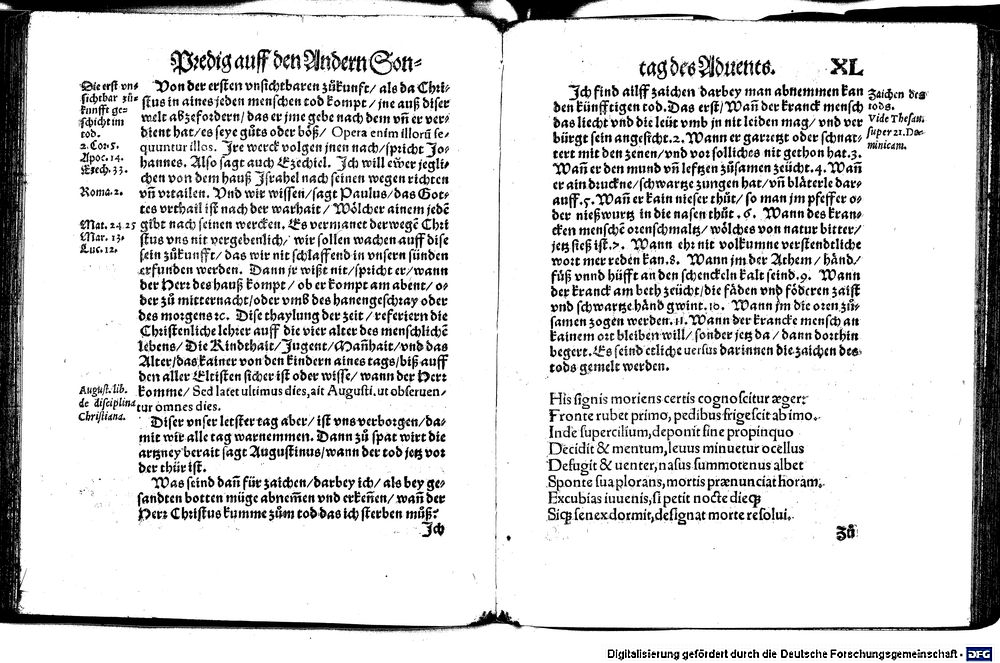 Predig auff den Andern Son-
Die erst vn-
sichtbar zů-
kunfft ge-
schicht im
tod.
2. Cor. 5.
Apoc. 14.
Ezech. 33.
Roma. 2.
Mat. 24 25
Mar. 13.
Luc. 12.
August. lib.
de disciplina
Christiana.
Von der ersten vnsichtbaren zůkunft/ als da Chri-
stus in aines jeden menschen tod kompt/ jne auß diser
welt abzefordern/ das er jme gebe nach dem vñ er ver-
dient hat/ es seye gůts oder böß/ Opera enim illorũ se-
quuntur illos. Ire werck volgen jnen nach/ spricht Jo-
hannes. Also sagt auch Ezechiel. Ich will ewer jegli-
chen von dem hauß Israhel nach seinen wegen richten
vñ vrtailen. Vnd wir wissen/ sagt Paulus/ das Got-
tes vrthail ist nach der warhait/ Wölcher ainem jedẽ
gibt nach seinen wercken. Es vermanet derwegẽ Chri
stus vns nit vergebenlich/ wir sollen wachen auff dise
sein zůkunfft/ das wir nit schlaffend in vnsern sünden
erfunden werden. Dann jr wißt nit/ spricht er/ wann
der Herr des hauß kompt/ ob er kompt am abent/ o-
der zů mitternacht/ oder vmb des hanengeschray oder
des morgens ꝛc. Dise thaylung der zeit/ referiern die
Christenliche lehrer auff die vier alter des menschlichẽ
lebens/ Die Kindthait/ Jugent/ Mañhait/ vnd das
Alter/ das kainer von den kindern aines tags/ biß auff
den aller Eltisten sicher ist oder wisse/ wann der Herr
komme/ Sed latet ultimus dies, ait Augusti. ut obseruen-
tur omnes dies.
Diser vnser letster tag aber/ ist vns verborgen/ da-
mit wir alle tag warnemmen. Dann zů spat wirt die
artzney berait sagt Augustinus/ wann der tod jetz vor
der thür ist.
Was seind dañ für zaichen/ darbey ich/ als bey ge-
sandten botten müge abnemẽn vnd erkeñen/ wañ der
Herr Christus kumme zům tod das ich sterben můß?
Ich
tag des Aduents. XL
Ich find ailff zaichen darbey man abnemmen kan
den künfftigen tod. Das erst/ Wañ der kranck mensch
das liecht vnd die leüt vmb jn nit leiden mag/ vnd ver
bürgt sein angesicht. 2. Wann er gartzt oder schnat-
tert mit den zenen/ vnd vor solliches nit gethon hat. 3.
Wañ er den mund vñ lefftzen zůsamen zeücht. 4. Wañ
er ain druckne/ schwartze zungen hat/ vñ blåterle dar-
auff. 5. Wañ er kain nieser thůt/ so man jm pfeffer o-
der nießwurtz in die nasen thůt. 6. Wann des kran-
cken menschẽ orenschmaltz/ wölches von natur bitter/
jetz sieß ist. 7. Wann ehr nit volkumne verstendtliche
wort mer reden kan. 8. Wann jm der Athem/ hånd/
füß vnnd hüfft an den schenckeln kalt seind. 9. Wann
der kranck am beth zeücht/ die fåden vnd föderen zaist
vnd schwartze hånd gwint. 10. Wann jm die oren zů-
samen zogen werden. 11. Wann der krancke mensch an
kainem ort bleiben will/ sonder jetz da/ dann dorthin
begert. Es seind etliche uersus darinnen die zaichen des
tods gemelt werden.
His signis moriens certis cognoscitur æger:
Fronte rubet primo, pedibus frigescit ab imo.
Inde supercilium, deponit sine propinquo
Decidit & mentum, leuus minuetur ocellus
Defugit & uenter, nasus summotenus albet
Sponte sua plorans, mortis prænunciat horam.
Excubias iuuenis, si petit nocte dieq́
Siq́ senex dormit, designat morte resolui.
Zů
Zaichen des
tods.
Vide Thesau.
super 21. Do-
minicam.
Digitalisierung gefördert durch die Deutsche Forschungsgemeinschaft - DFG